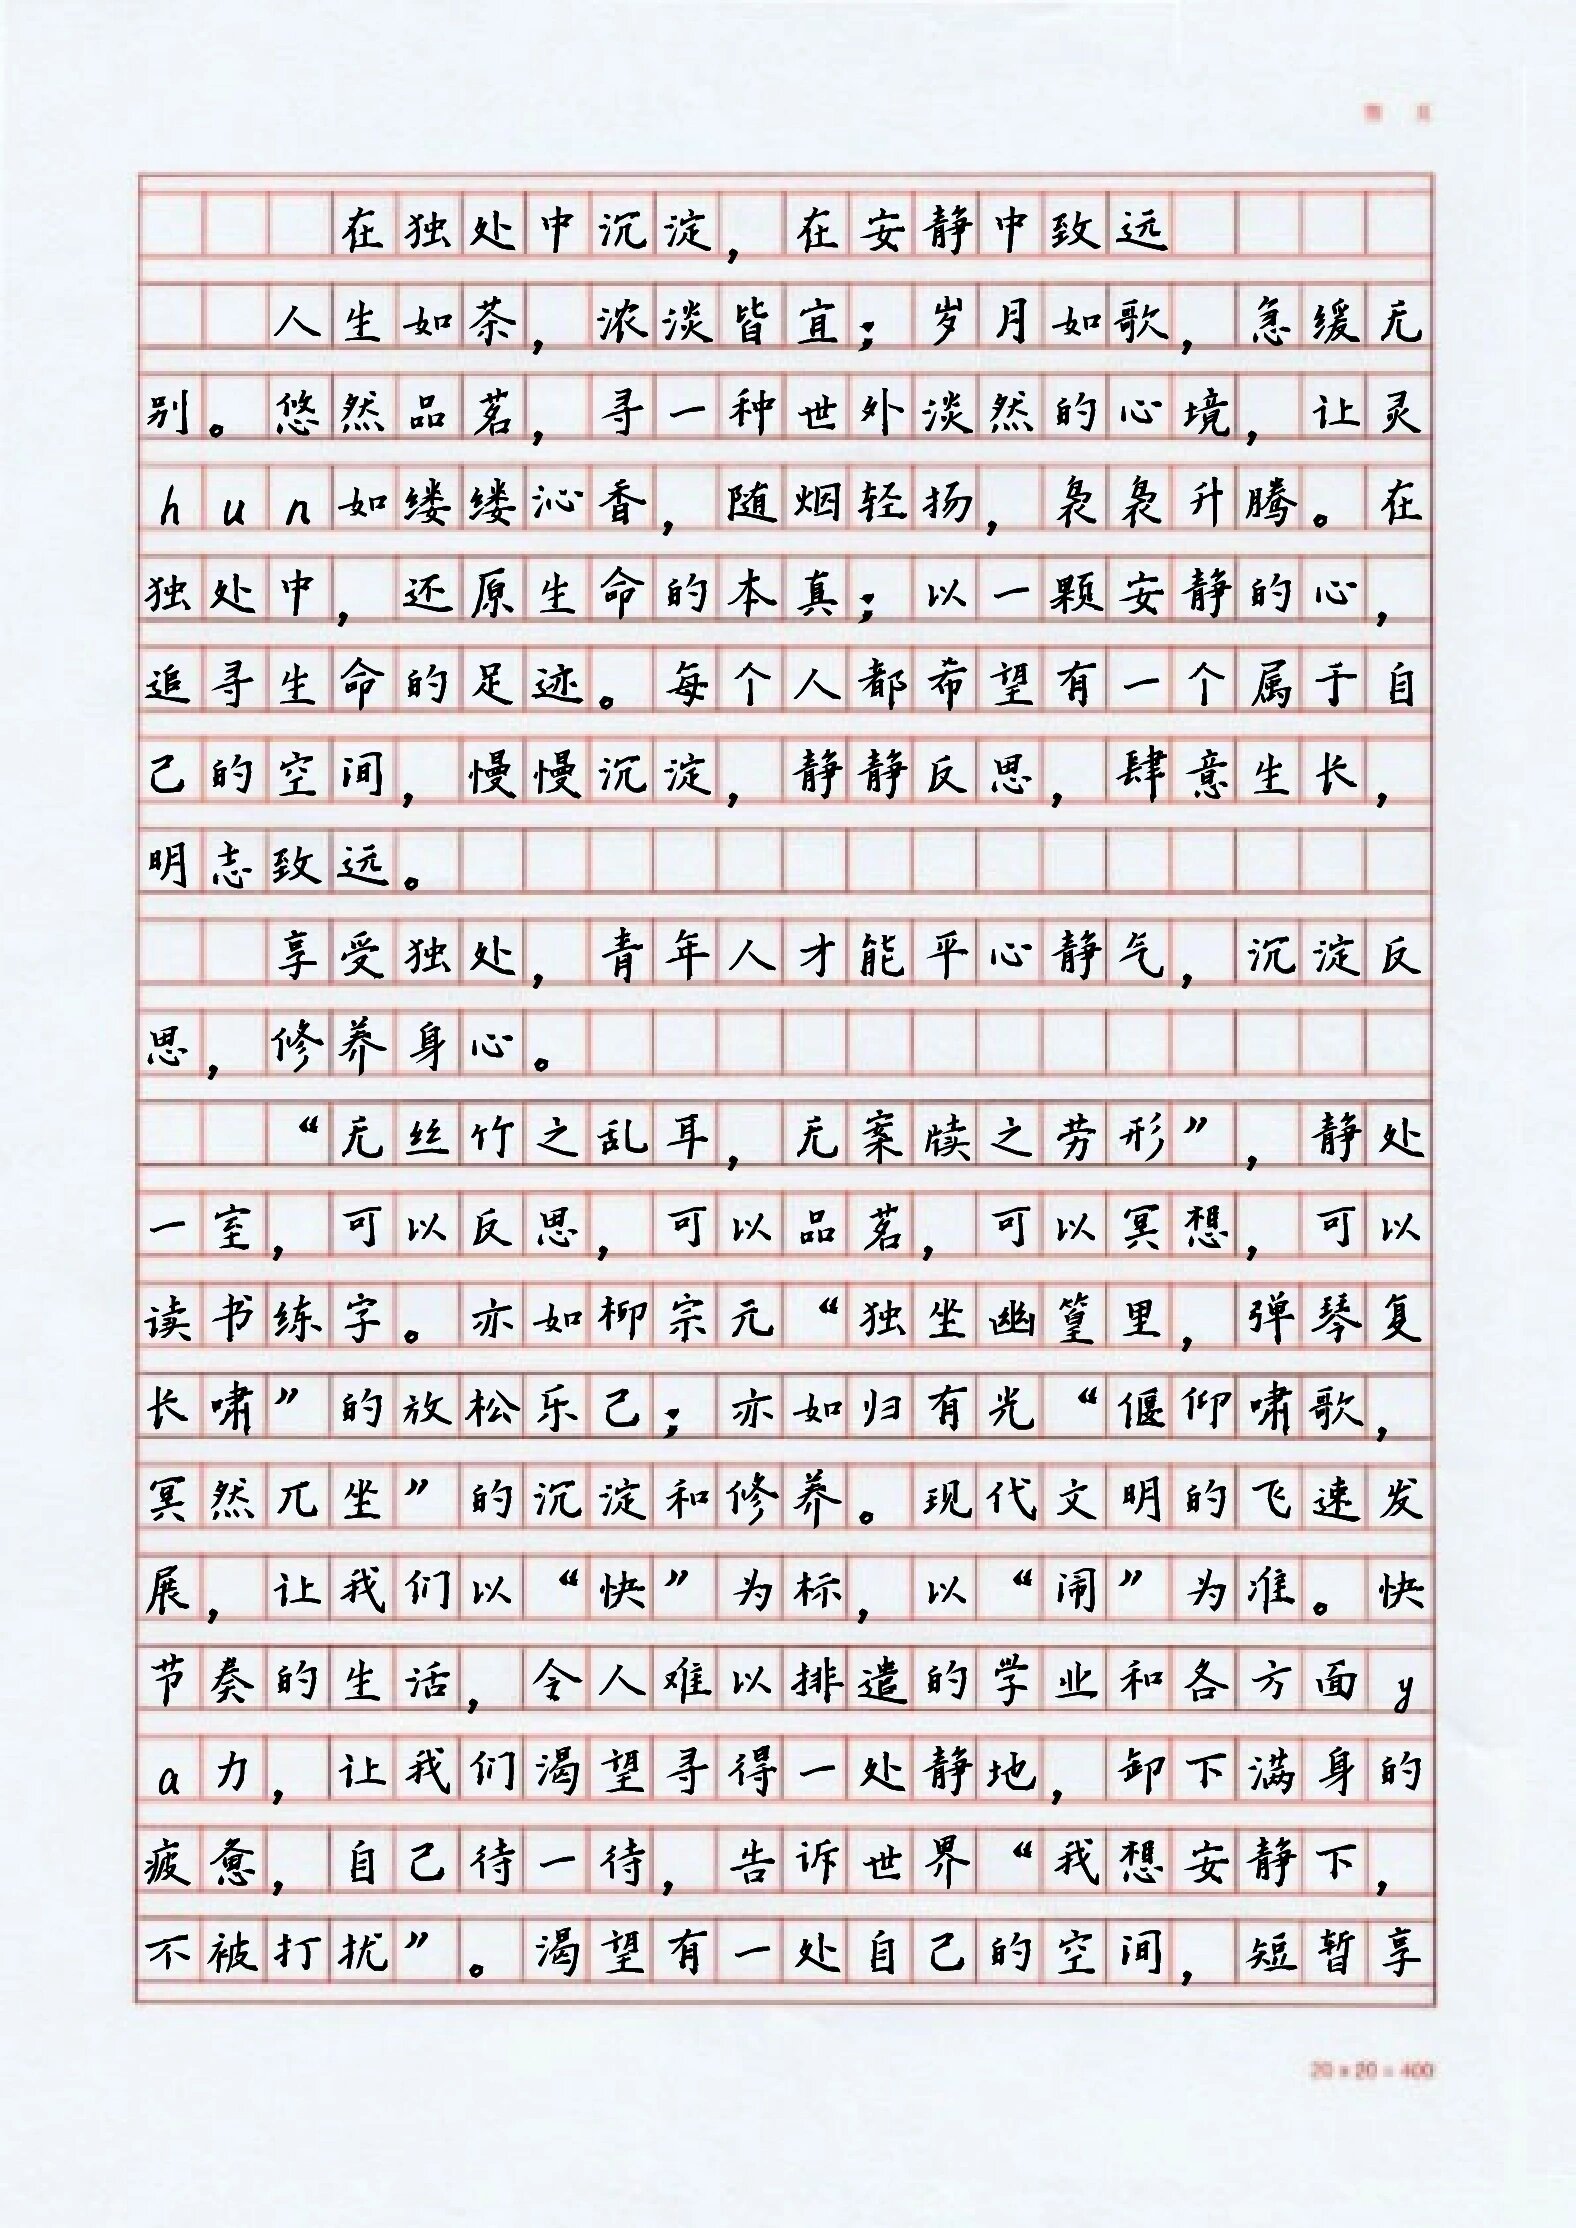 在独处中沉淀，在安静中致远
人生如茶，浓淡皆宜；岁月如歌，急缓无
别。悠然品茗，寻一种世外淡然的心境，让灵
hun如缕缕沁香，随烟轻扬，袅袅升腾。在
独处中，还原生命的本真；以一颗安静的心，
追寻生命的足迹。每个人都希望有一个属于自
己的空间，慢慢沉淀，静静反思，肆意生长，
明志致远。
享受独处，青年人才能平心静气，沉淀反
思，修养身心。
“无丝竹之乱耳，无案牍之劳形”，静处
一室，可以反思，可以品茗，可以冥想，可以
读书练字。亦如柳宗元“独坐幽篁里，弹琴复
长啸”的放松乐己；亦如归有光“偃仰啸歌，
冥然兀坐”的沉淀和修养。现代文明的飞速发
展，让我们以“快”为标，以“闹”为准。快
节奏的生活，令人难以排遣的学业和各方面y
a力，让我们渴望寻得一处静地，卸下满身的
疲惫，自己待一待，告诉世界“我想安静下，
不被打扰”。渴望有一处自己的空间，短暂享
20×20=400